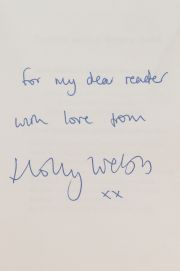 for my dear reader
with love from
Holly Webb
xx